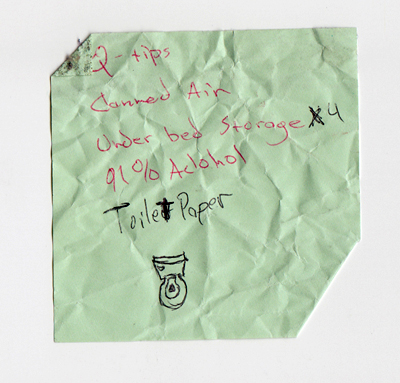 Q-tips
Canned Air
Under bed Storage x4
91% Alcohol
Toilet Paper